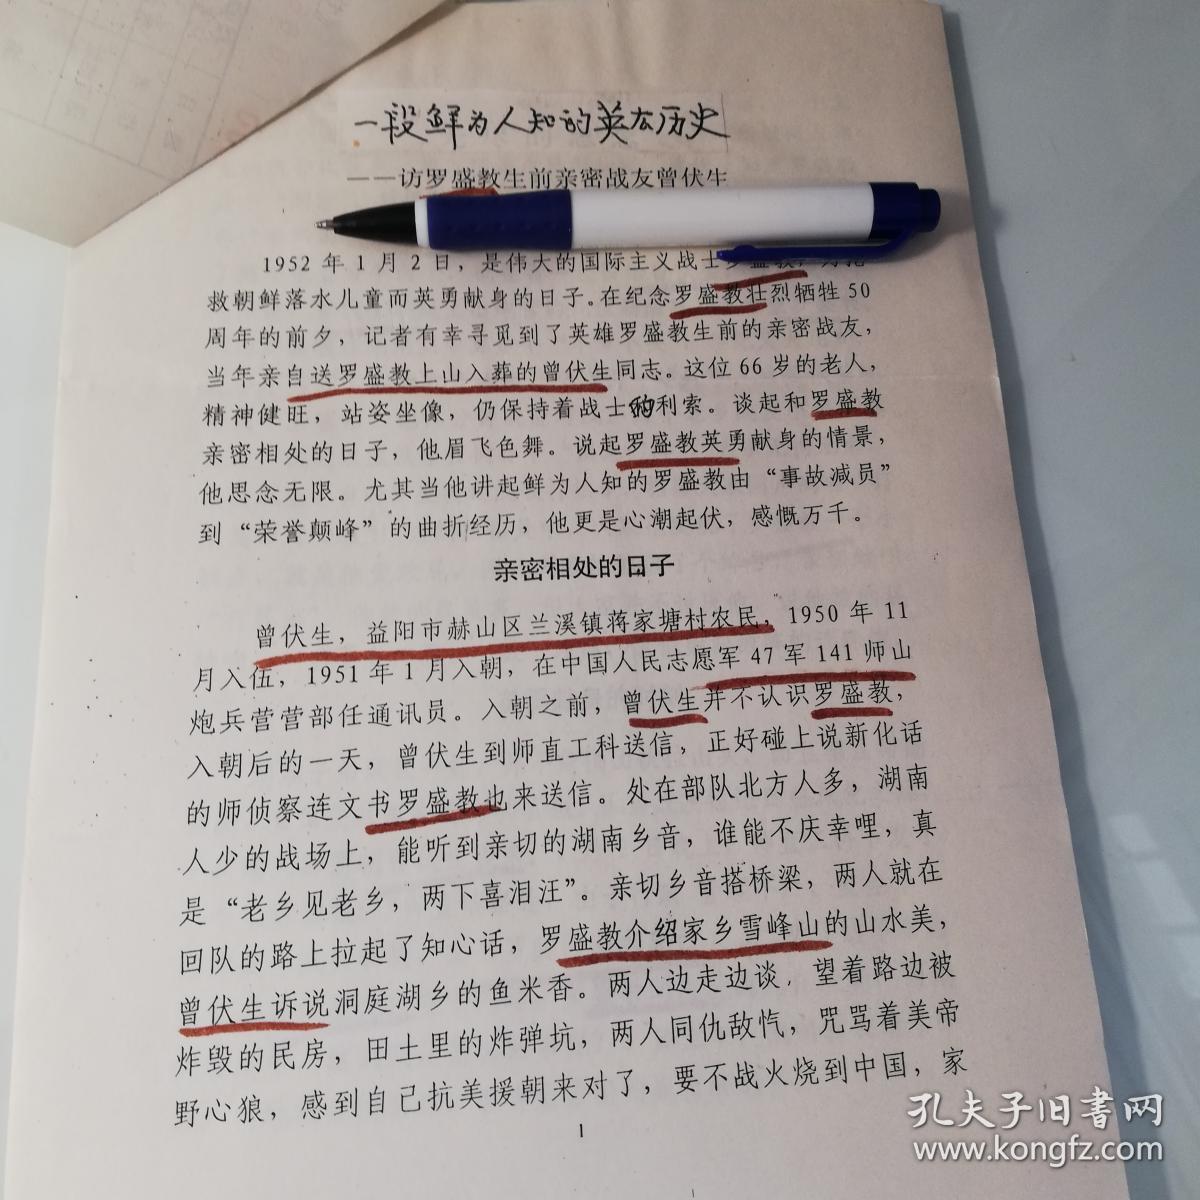 一段鲜为人知的英太历史
——访罗盛教生前亲密战友曾伏生
1952年1月2日，是伟大的国际主义战士罗盛教，为抢
救朝鲜落水儿童而英勇献身的日子。在纪念罗盛教壮烈牺牲50
周年的前夕，记者有幸寻觅到了英雄罗盛教生前的亲密战友，
当年亲自送罗盛教上山入葬的曾伏生同志。这位66岁的老人，
精神健旺，站姿坐像，仍保持着战士的利索。谈起和罗盛教
亲密相处的日子，他眉飞色舞。说起罗盛教英勇献身的情景，
他思念无限。尤其当他讲起鲜为人知的罗盛教由“事故减员”
到“荣誉颠峰”的曲折经历，他更是心潮起伏，感慨万千。
亲密相处的日子
曾伏生，益阳市赫山区兰溪镇蒋家塘村农民，1950年11
月入伍，1951年1月入朝，在中国人民志愿军47军141师山
炮兵营营部任通讯员。入朝之前，曾伏生并不认识罗盛教，
入朝后的一天，曾伏生到师直工科送信，正好碰上说新化话
的师侦察连文书罗盛教也来送信。处在部队北方人多，湖南
人少的战场上，能听到亲切的湖南乡音，谁能不庆幸哩，真
是“老乡见老乡，两下喜泪汪”。亲切乡音搭桥梁，两人就在
回队的路上拉起了知心话，罗盛教介绍家乡雪峰山的山水美，
曾伏生诉说洞庭湖乡的鱼米香。两人边走边谈，望着路边被
炸毁的民房，田土里的炸弹坑，两人同仇敌忾，咒骂着美帝
野心狼，感到自己抗美援朝来对了，要不战火烧到中国，家
1
孔夫子旧书网
www.kongfz.com